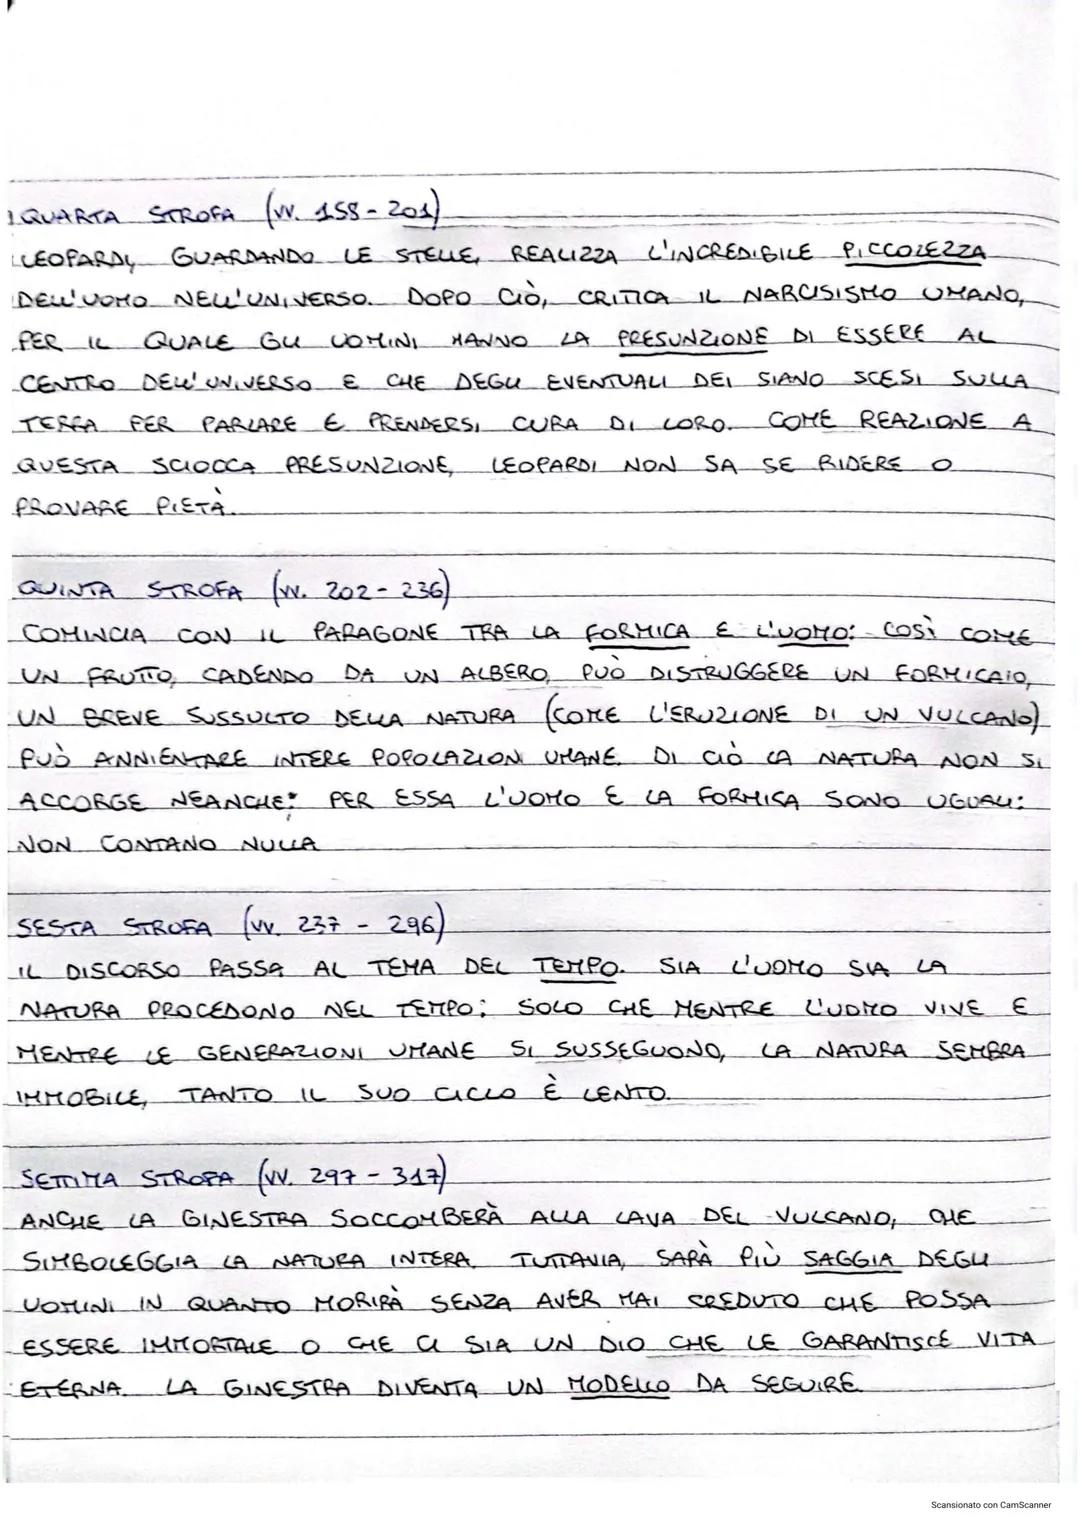 QUARTA STROFA (vv. 158 - 201)
LEOPARDI, GUARDANDO LE STELLE, REALIZZA L'INCREDIBILE PICCOLEZZA
DELL'UOMO NELL'UNIVERSO. DOPO CIÒ, CRITICA IL NARCISISMO UMANO,
PER IL QUALE GLI UOMINI HANNO LA PRESUNZIONE DI ESSERE AL
CENTRO DELL'UNIVERSO E CHE DEGLI EVENTUALI DEI SIANO SCESI SULLA
TERRA PER PARLARE E PRENDERSI CURA DI LORO. COME REAZIONE A
QUESTA SCIOCCA PRESUNZIONE, LEOPARDI NON SA SE RIDERE O
PROVARE PIETÀ.
QUINTA STROFA (vv. 202 - 236)
COMINCIA CON IL PARAGONE TRA LA FORMICA E L'UOMO: COSÌ COME
UN FRUTTO, CADENDO DA UN ALBERO, PUÒ DISTRUGGERE UN FORMICAIO,
UN BREVE SUSSULTO DELLA NATURA (COME L'ERUZIONE DI UN VULCANO)
PUÒ ANNIENTARE INTERE POPOLAZIONI UMANE. DI CIÒ LA NATURA NON SI
ACCORGE NEANCHE: PER ESSA L'UOMO E LA FORMICA SONO UGUALI:
NON CONTANO NULLA
SESTA STROFA (vv. 237 - 296)
IL DISCORSO PASSA AL TEMA DEL TEMPO. SIA L'UOMO SIA LA
NATURA PROCEDONO NEL TEMPO; SOLO CHE MENTRE L'UOMO VIVE E
MENTRE LE GENERAZIONI UMANE SI SUSSEGUONO, LA NATURA SEMBRA
IMMOBILE, TANTO IL SUO CICLO È LENTO.
SETTIMA STROFA (vv. 297 - 317)
ANCHE LA GINESTRA SOCCOMBERÀ ALLA LAVA DEL VULCANO, CHE
SIMBOLEGGIA LA NATURA INTERA. TUTTAVIA, SARÀ PIÙ SAGGIA DEGLI
UOMINI IN QUANTO MORIRÀ SENZA AVER MAI CREDUTO CHE POSSA
ESSERE IMMORTALE O CHE CI SIA UN DIO CHE LE GARANTISCE VITA
ETERNA. LA GINESTRA DIVENTA UN MODELLO DA SEGUIRE.
Scansionato con CamScanner